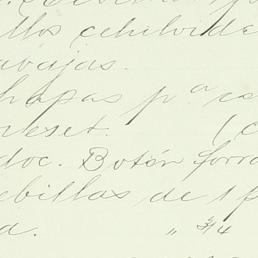 llos celuloide
avajas.
hapas p.ª co
rset. (c
doc. Botón forra
ebillas de 1 p
a. " 3/4